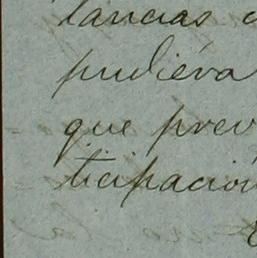 tancias
pudiéra
que prev
ticipación